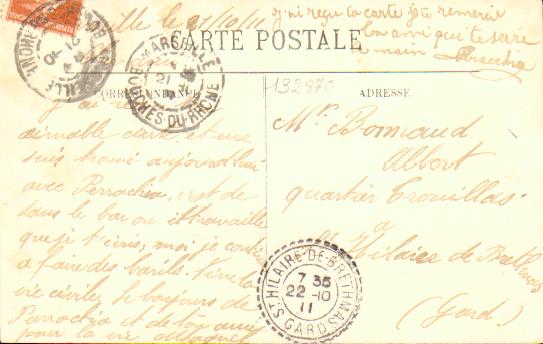 ille le 21/10/11
j'ai reçu ta carte je te remercie
ton ami qui te serre
la main Perrachia
CARTE POSTALE
MARSEILLE
21
BOUCHES-DU-RHONE
132870
CORRESPONDANCE
ADRESSE
J'ai
aimable carte et me
suis trouvé aujourd'hui
avec Perrachia, c'est de
dans le bar ou il travaille
que je t'écris, moi je continue
a faire des barils. Vive la
vie civile. Le bonjour de
Perrachia et de ton ami
pour la vie
Mr. Bonnaud
Albert
quartier Trouillas
a
St Hilaire de Brethmas
(Gard)
ST HILAIRE-DE-BRETHMAS
7 35
22-10
11
GARD